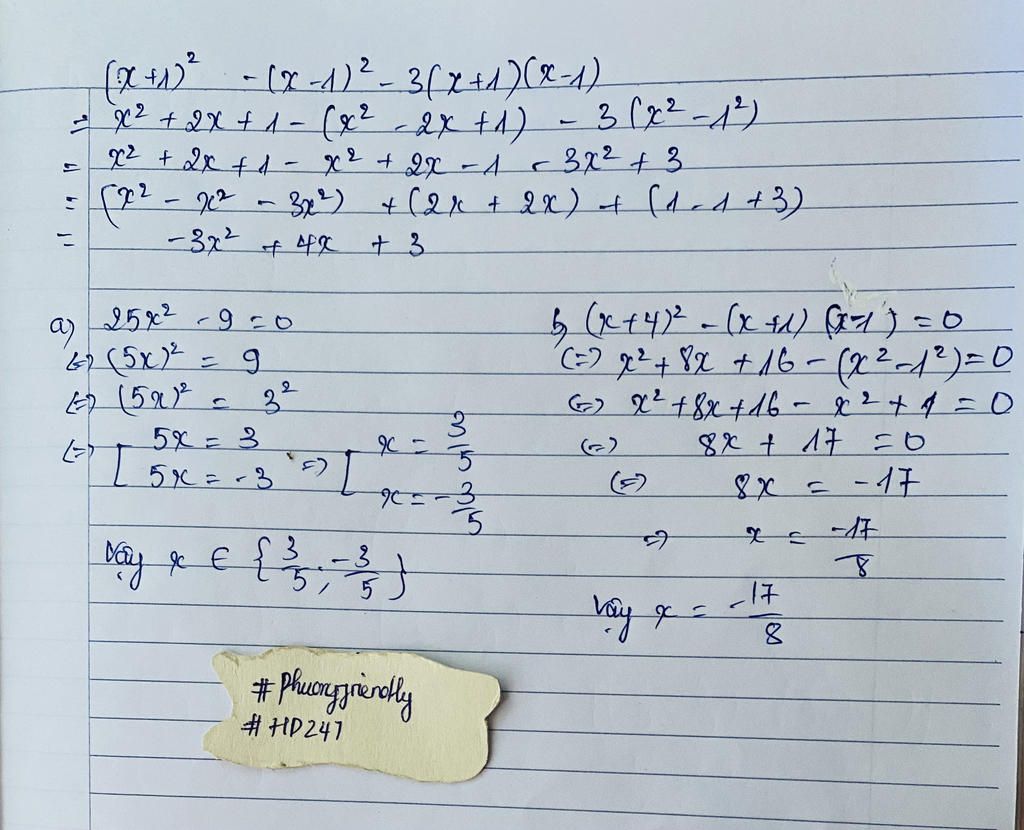 (x+1)² - (x-1)² - 3(x+1)(x-1)
= x² + 2x + 1 - (x² - 2x + 1) - 3(x² - 1²)
= x² + 2x + 1 - x² + 2x - 1 - 3x² + 3
= (x² - x² - 3x²) + (2x + 2x) + (1 - 1 + 3)
= -3x² + 4x + 3
a) 25x² - 9 = 0
(=) (5x)² = 9
(=) (5x)² = 3²
(=) [ 5x = 3 => [ x = 3/5
5x = -3 x = -3/5
Vậy x ∈ {3/5; -3/5}
b) (x+4)² - (x+1)(x-1) = 0
(=) x² + 8x + 16 - (x² - 1²) = 0
(=) x² + 8x + 16 - x² + 1 = 0
(=) 8x + 17 = 0
(=) 8x = -17
=> x = -17/8
Vậy x = -17/8
# Phuongfriendly
# HD247